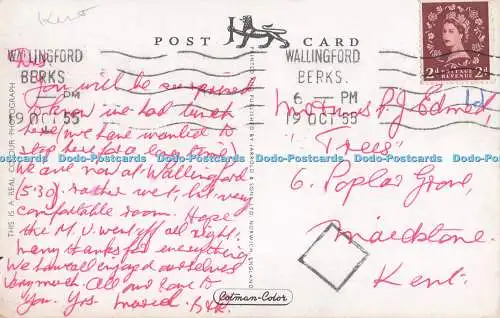 Kent
POST CARD
WALLINGFORD
BERKS
PM
19 OCT 55
WALLINGFORD
BERKS.
6 - PM
19 OCT 55
2d POSTAGE REVENUE 2d
You will be surprised
to know we had lunch
here (we have wanted to
stop here for a long time)
We are now at Wallingford
(5.30). rather wet, but very
comfortable room. Hope
the M.U. went off all right.
Many thanks for everything
We have all enjoyed ourselves
very much. All our love to
you. Yrs.
P.J. Edmed,
"Trees"
6. Poplar Grove,
Maidstone.
Kent.
THIS IS A REAL COLOUR PHOTOGRAPH
NORWICH, ENGLAND
Cotman-Color
Dodo-Postcards Dodo-Postcards Dodo-Postcards Dodo-Postcards Dodo-Postcards Dodo-Postcards